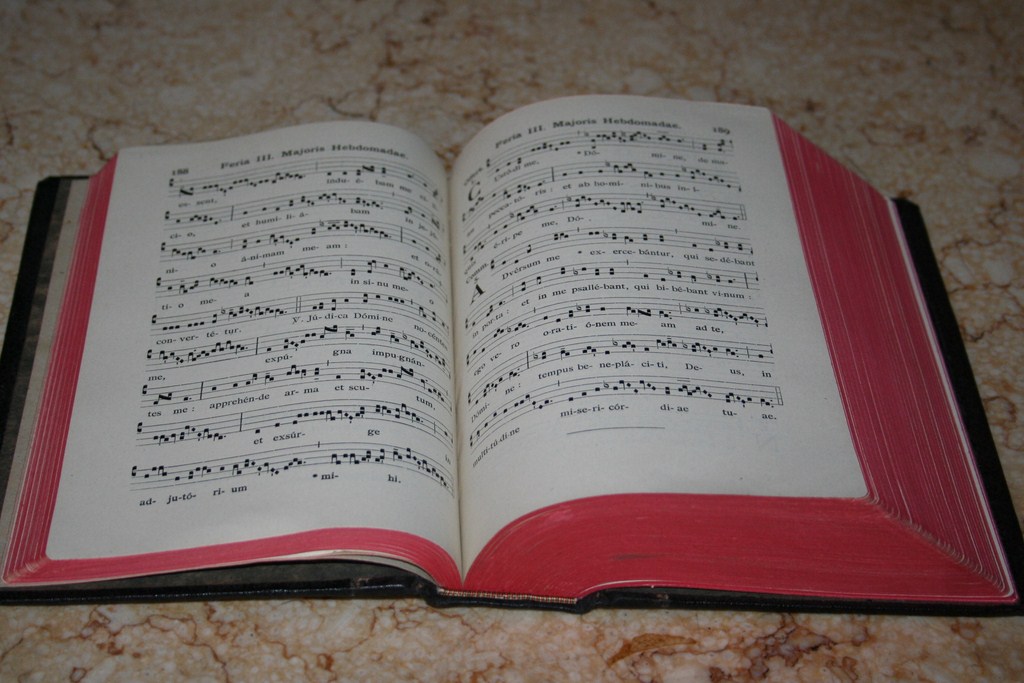 188 Feria III. Majoris Hebdomadae.
es- sent, indu- é- bam me ci-
ci- o, et humi- li- á- bam in je- jú-
ni- o á-nimam me- am :
ti- o me- a in si- nu me- o
con- ver- té- tur. ℣. Jú- di- ca Dómi- ne nocéntes
me, expú- gna impu- gnán-
tes me : apprehén- de ar- ma et scu- tum,
et exsúr- ge in
ad- ju-tó- ri- um * mi- hi.
Feria III. Majoris Hebdomadae. 189
Custó-di me, * Dó- mi- ne, de ma-
nu pecca- tó- ris : et ab ho- mí- ni- bus in- í-
é- ri- pe me, Dó- mi- ne.
Advérsum me * ex- erce- bántur, qui se-dé-bant
in por- ta : et in me psallé- bant, qui bi- bé-bant vi- num :
ego ve- ro o- ra- ti- ó-nem me- am ad te,
Dómi- ne : tempus be- ne-plá- ci- ti, De- us, in
multi- tú- di- ne mi- se- ri- cór- di- ae tu- ae.